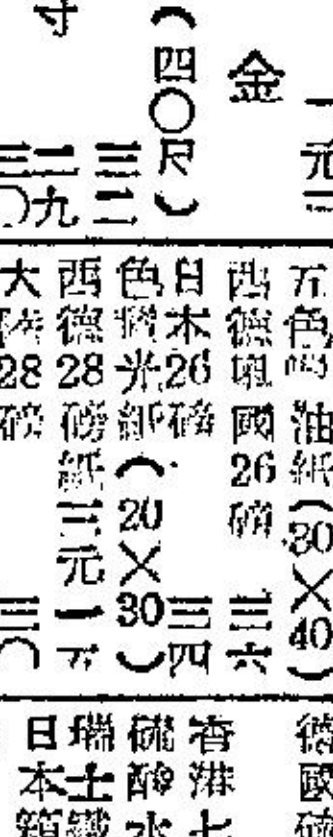 一元三
金
(四〇尺)
三二
二九
三〇
寸
五色蠟油紙(30×40)
西德 國26磅 三六
日本26磅 三四
色蠟光紙(20×30)
西德28磅紙三元一五
大陸28磅 三〇
德國硫
香港七
硫酸水
瑞士鐵
日本箱